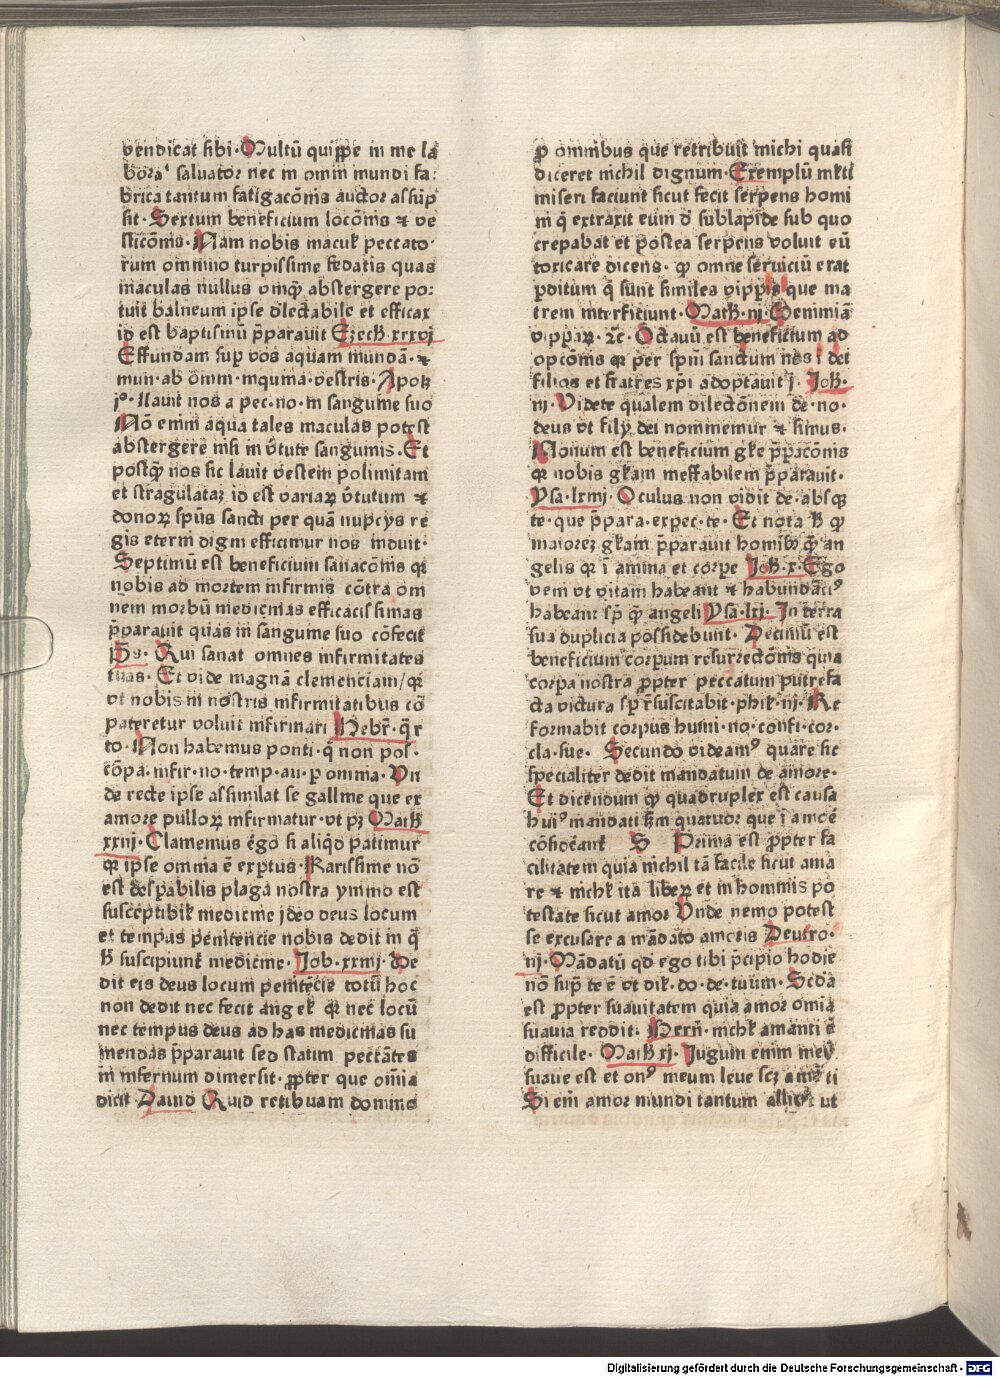 vendicat sibi· Multū quippe in me la
boraꝰ saluator nec in omni mundi fa⸗
brica tantum fatigacōnis auctor assūp
sit· Sextum beneficium locōnis ⁊ ve
sticōnis· Nam nobis macuł peccato⸗
rum omnino turpissime fedatis quas
maculas nullus vnqȝ abstergere po⸗
tuit balneum ipse dlectabile et efficax
id est baptismū p̄parauit Ezech·xxxvj
Effundam sup vos aquam mundā· ⁊
mun·ab omni·inquina·vestris· Apoꝝ
jº· Lauit nos a pec·no·in sanguine suo
Nō enim aqua tales maculas potest
abstergere nisi in v̄tute sanguinis· Et
postqȝ nos sic lauit vestem polimitam
et stragulataȝ id est variaꝝ v̄tutum ⁊
donoꝝ spūs sancti per quā nupcys re
gis eterni digni efficimur nos induit·
Septimū est beneficium sanacōnis qꝛ
nobis ad mortem infirmis cōtra om
nem morbū medicinas efficacissimas
p̄parauit quas in sanguine suo cōfecit
Ps· Qui sanat omnes infirmitates
tuas· Et vide magnā clemenciam/qꝛ
vt nobis in nostris infirmitatibus cō
pateretur voluit infirmari Hebr̄·q̄r
to· Non habemus ponti·q̄ non pos·
cōpa·infir·no·temp·au·p omnia· Vn
de recte ipse assimilat se galline que ex
amore pulloꝝ infirmatur·vt pȝ Math
xxiij· Clamemus ergo si aliqd patimur
qꝛ ipse omnia ē exptus· Karissime nō
est despabilis plaga nostra ymmo est
susceptibił medicine jdeo deus locum
et tempus penitencie nobis dedit in q̄
h̄ suscipiunt medicine· Job·xxiiij· De
dit eis deus locum penitēcie totū hoc
non dedit nec fecit angeł qꝛ nec locū
nec tempus deus ad has medicinas su
mendas p̄parauit sed statim peccātes
in infernum dimersit· ꝓpter que om̄ia
dicit Dauid Quid retibuam domino
ꝓ omnibus que retribuit michi quasi
diceret nichil dignum· Exemplū
miseri faciunt sicut fecit serpens homi
ni q̄ extraxit eum d sublapide sub quo
crepabat et postea serpens voluit eū
toxicare dicens· qȝ omne seruiciū erat
pditum q̄ sunt similes vippris que ma
trem interficiunt· Math·iij Genimīa
vippaꝝ·⁊c· Octauū est beneficium ad
opcōnis qꝛ per spm̄ sanctum nos ī dei
filios et fratres xpi adoptauit j· Joh·
iij· Videte qualem dilectōnem de·no·
deus vt fily dei nominemur ⁊ simus·
Nonum est beneficium głe p̄pacōnis
qꝛ nobis głam ineffabilem p̄parauit·
Ysa·lxiiij· Oculus non vidit de·absqȝ
te·que p̄para·expec·te· Et nota h̄ qȝ
maioreȝ głam p̄parauit homībȝ qȝ an
gelis qꝛ ī amina et corpe Joh·x·Ego
veni vt vitam habeant ⁊ habundācꝰ
habeant sꝑ qȝ angeli Ysa·lxj· In terra
sua duplicia possidebunt· Decimū est
beneficium corpum resurrectōnis quia
corpa nostra ꝓpter peccatum putrefa
cta victura sꝑ r̄suscitabit·phił·iij· Re
formabit corpus humi·no·confi·cor·
cla·sue· Secundo videamꝰ quare sic
specialiter dedit mandatum de amore·
Et dicendum qȝ quadruplex est causa
huiꝰ mandati sm quatuor que ī amoē
cōsiđeant S Prima est ꝓpter fa
cilitatem quia nichil tā facile sicut ama
re ⁊ nichł ita libeꝝ et in hominis po
testate sicut amor Vnde nemo potest
se excusare a mādato amoris Deutro·
iij· Mādatū qd ego tibi p̄cipio hodie
nō sup̄ te ē vt dił·do·de·tuum· Scd́a
est ꝓpter suauitatem quia amor omīa
suauia reddit· Bern̄· nichł amanti ē
difficile· Math xj· Jugum enim meū
suaue est et onꝰ meum leue scȝ amāti
Si em̄ amor mundi tantum allicit ut
Digitalisierung gefördert durch die Deutsche Forschungsgemeinschaft - DFG